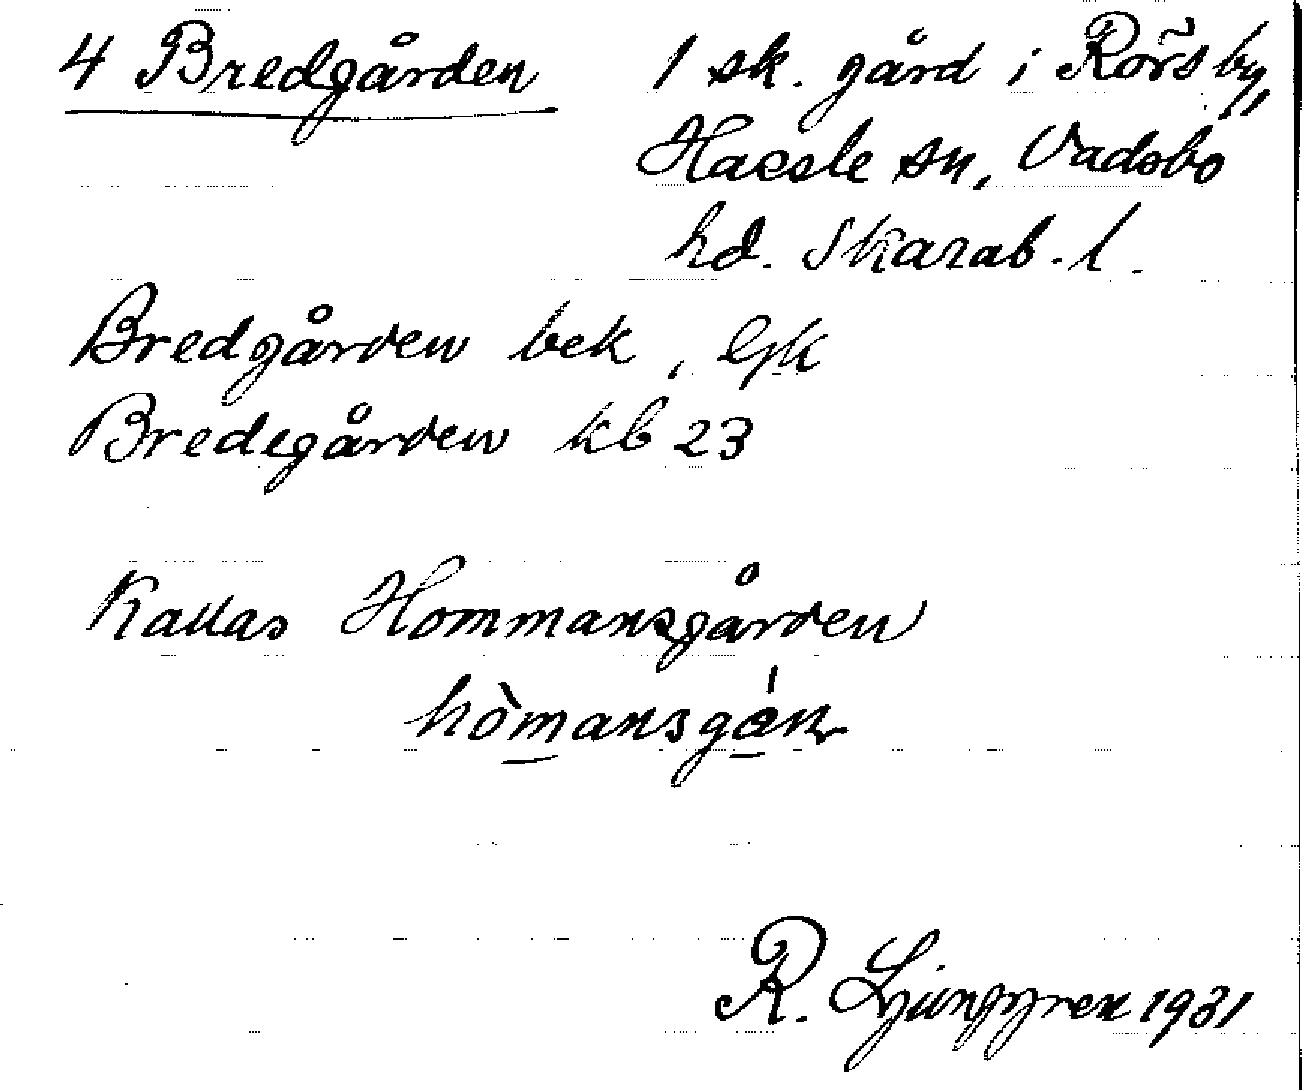 4 Bredgården 1 sk. gård i Rörs by,
Hassle sn, Vadsbo
hd. Skarab. l.
Bredgården bek, Gk
Bredegården kb 23
Kallas Hommansgården
hòmansgán
R. Ljunggren 1931